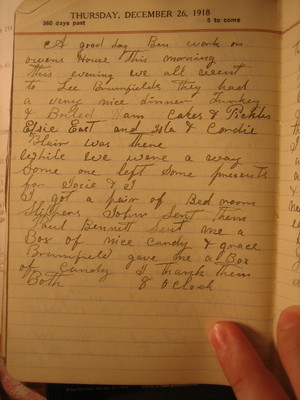 THURSDAY, DECEMBER 26, 1918
360 days past 5 to come
A good day Ben work on
owens House this morning
this evening we all went
to Lee Brumfields they had
a very nice dinner Turkey
& Boiled Ham Cakes & Pickles
Elsie East and Ila & Condie
Blair was there
While we were a way
Some one left Some presents
for Socie & I
I got a pair of Bed room
Slippers Sent them
Bennett Sent me a
Box of nice Candy & grace
Brumfield gave me a Box
of Candy I thank them
Both 8 O Clock